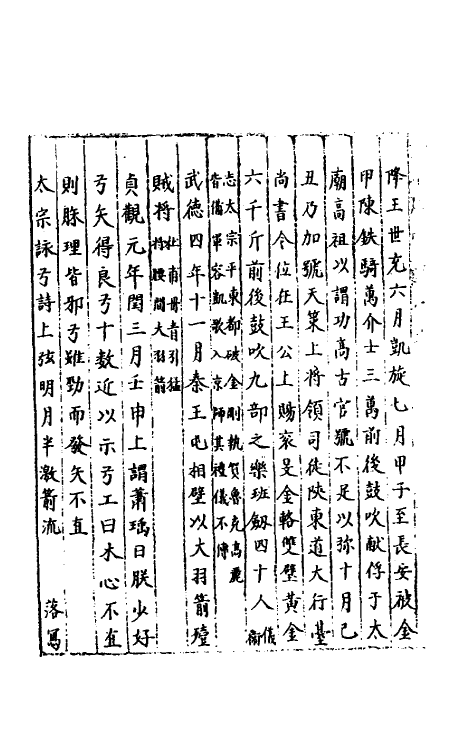 降王世充六月凱旋七月甲子至長安被金
甲陳鉄騎萬介士三萬前後鼓吹献俘于太
廟高祖以謂功高古官號不足以称十月己
丑乃加號天策上將領司徒陜東道大行臺
尚書令位在王公上賜衮冕金輅雙璧黄金
六千斤前後鼓吹九部之樂班劔四十人儀衛
志太宗平東都破金剛執賀魯克高麗
皆備軍容凱歌入京師其禮儀不傳
武德四年十一月秦王屯相壁以大羽箭殪
賊将 丹青引猛
将腰間大羽箭
貞觀元年閏三月壬申上謂蕭瑀曰朕少好
弓矢得良弓十数近以示弓工曰木心不直
則脉理皆邪弓雖勁而發矢不直
太宗詠弓詩上弦明月半激箭流 落鴈